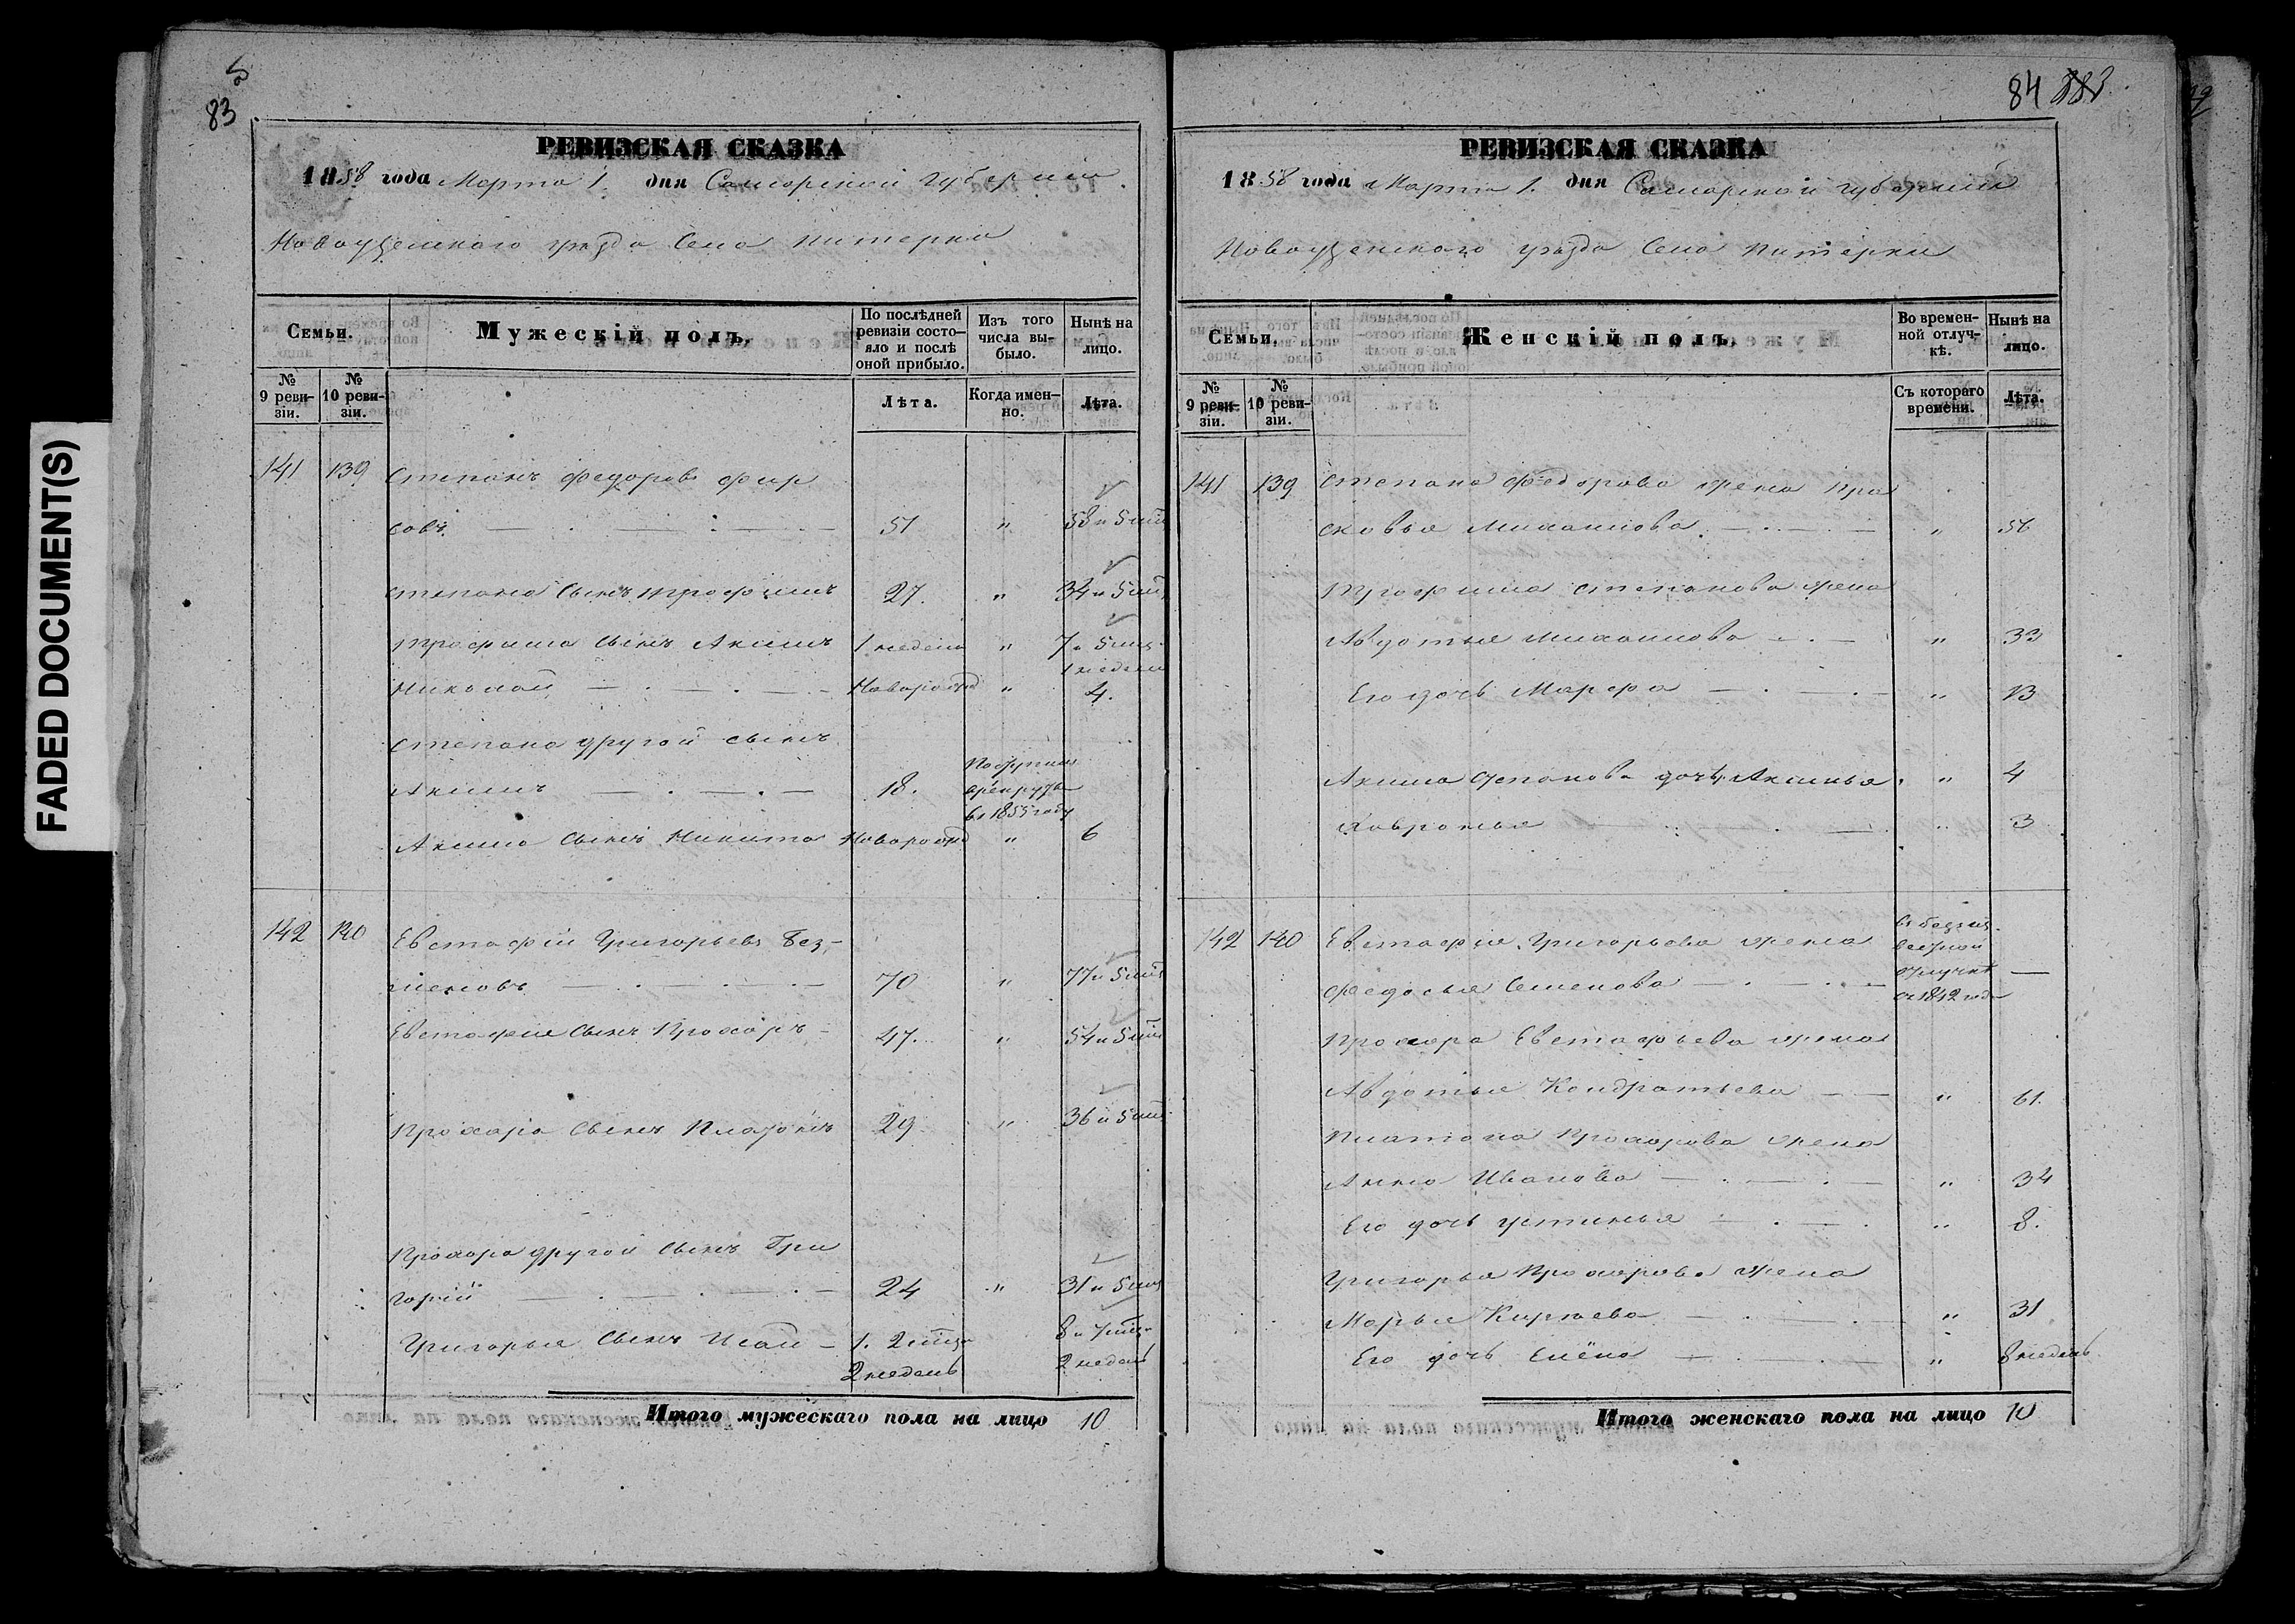 FADED DOCUMENT(S)
5
83
РЕВИЗСКАЯ СКАЗКА
1858 года Марта 1. дня Самарской губернии
Новоузенскаго уѣзда Села Питерки
Семьи.
Мужескій полъ.
По послѣдней ревизіи состо-
яло и послѣ оной прибыло.
Изъ того числа вы-
было.
Нынѣ на лицо.
№ 9 реви-
зіи.
№ 10 реви-
зіи.
Лѣта.
Когда имен-
но.
Лѣта.
141 139 Степанъ Федоровъ Фир
совъ. 51 " 58 и 5 мѣс
Степана Сынъ Трофимъ 27. " 34 и 5 мѣс
Трофима Сынъ Акимъ 1 недели " 7 и 5 мѣс
1 недели
Николай Новорожд " 4.
Степана другой сынъ
Акимъ 18.
в рекруты
въ 1855 году
Акима Сынъ Никита Новорожд " 6
142 140 Евстафій Григорьевъ Без-
меновъ 70 " 77 и 5 мѣс
Евстафія Сынъ Прохоръ 47. " 54 и 5 мѣс
Прохора Сынъ Платонъ 29 " 36 и 5 мѣс
Прохора другой Сынъ Гри
горій 24 " 31 и 5 мѣс
Григорья Сынъ Исай 1. 2 мѣс 8 и 7 мѣс
2 недель 2 недель
Итого мужескаго пола на лицо 10
84
РЕВИЗСКАЯ СКАЗКА
1858 года Марта 1. дня Самарской губерніи
Новоузенскаго уѣзда Села Питерки
Семьи.
Женскій полъ.
Во времен-
ной отлуч-
кѣ.
Нынѣ на лицо.
№ 9 реви-
зіи.
№ 10 реви-
зіи.
Съ котораго времени.
Лѣта.
141 139 Степана Федорова жена Пра
сковья Михаилова " 56
Трофима Степанова жена
Авдотья Михаилова " 33
Его дочь Марфа " 13
Акима Степанова дочь Аксинья " 4
Хавронья " 3
142 140 Евстафія Григорьева жена въ безиз
вестной
Федосья Семенова отлучке —
съ 1842 года
Прохора Евстафьева жена
Авдотья Кондратьева " 61.
Платона Прохорова жена
Анна Иванова " 34
Его дочь Устинья " 8.
Григорья Прохорова жена
Марья Карпова " 31
Его дочь Елёна " 8 недель
Итого женскаго пола на лицо 10